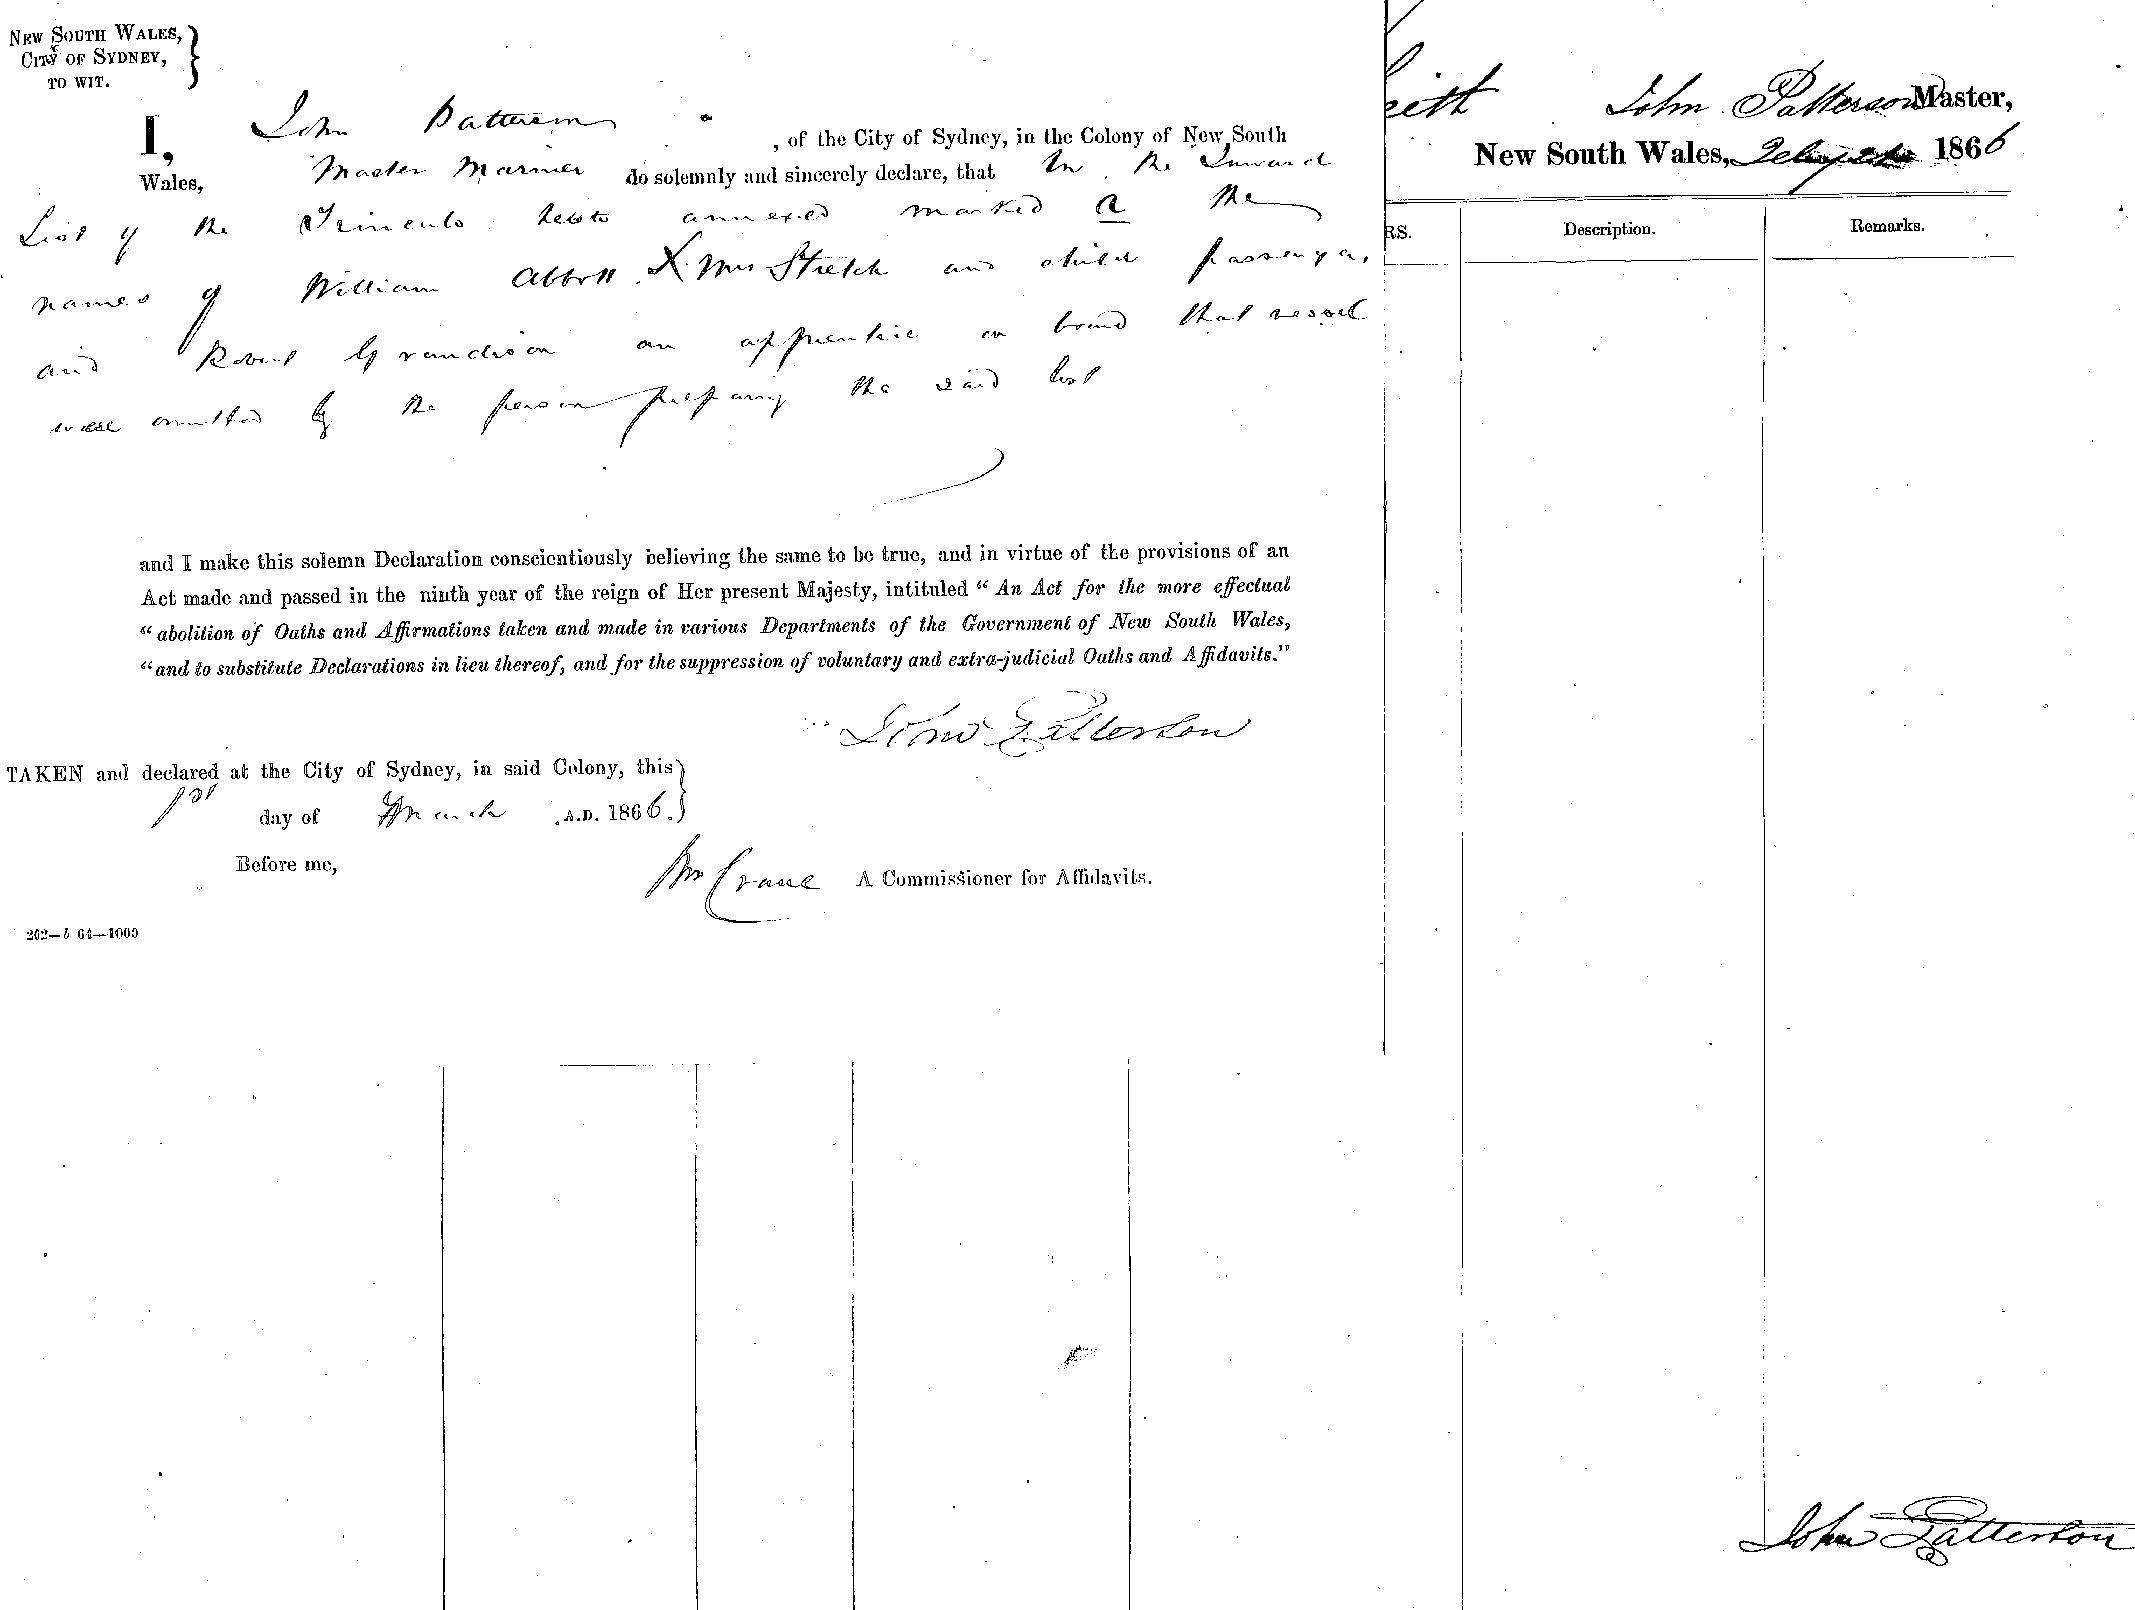 NEW SOUTH WALES,
CITY OF SYDNEY,
TO WIT.
I, John Patterson, of the City of Sydney, in the Colony of New South
Wales, Master Mariner do solemnly and sincerely declare, that In the Inward
List of the Trinculo hereto annexed marked A the
names of William Abbott X Mrs Stretch and child passengers
and Robert Grandison an apprentice on board that vessel
were omitted by the person preparing the said list
and I make this solemn Declaration conscientiously believing the same to be true, and in virtue of the provisions of an
Act made and passed in the ninth year of the reign of Her present Majesty, intituled “ An Act for the more effectual
“ abolition of Oaths and Affirmations taken and made in various Departments of the Government of New South Wales,
“ and to substitute Declarations in lieu thereof, and for the suppression of voluntary and extra-judicial Oaths and Affidavits.”
John Patterson
TAKEN and declared at the City of Sydney, in said Colony, this
1st day of March A.D. 1866.
Before me,
Wm Crane A Commissioner for Affidavits.
262—b 64—1000
John Patterson Master,
New South Wales, 1866
RS. Description. Remarks.
John Patterson